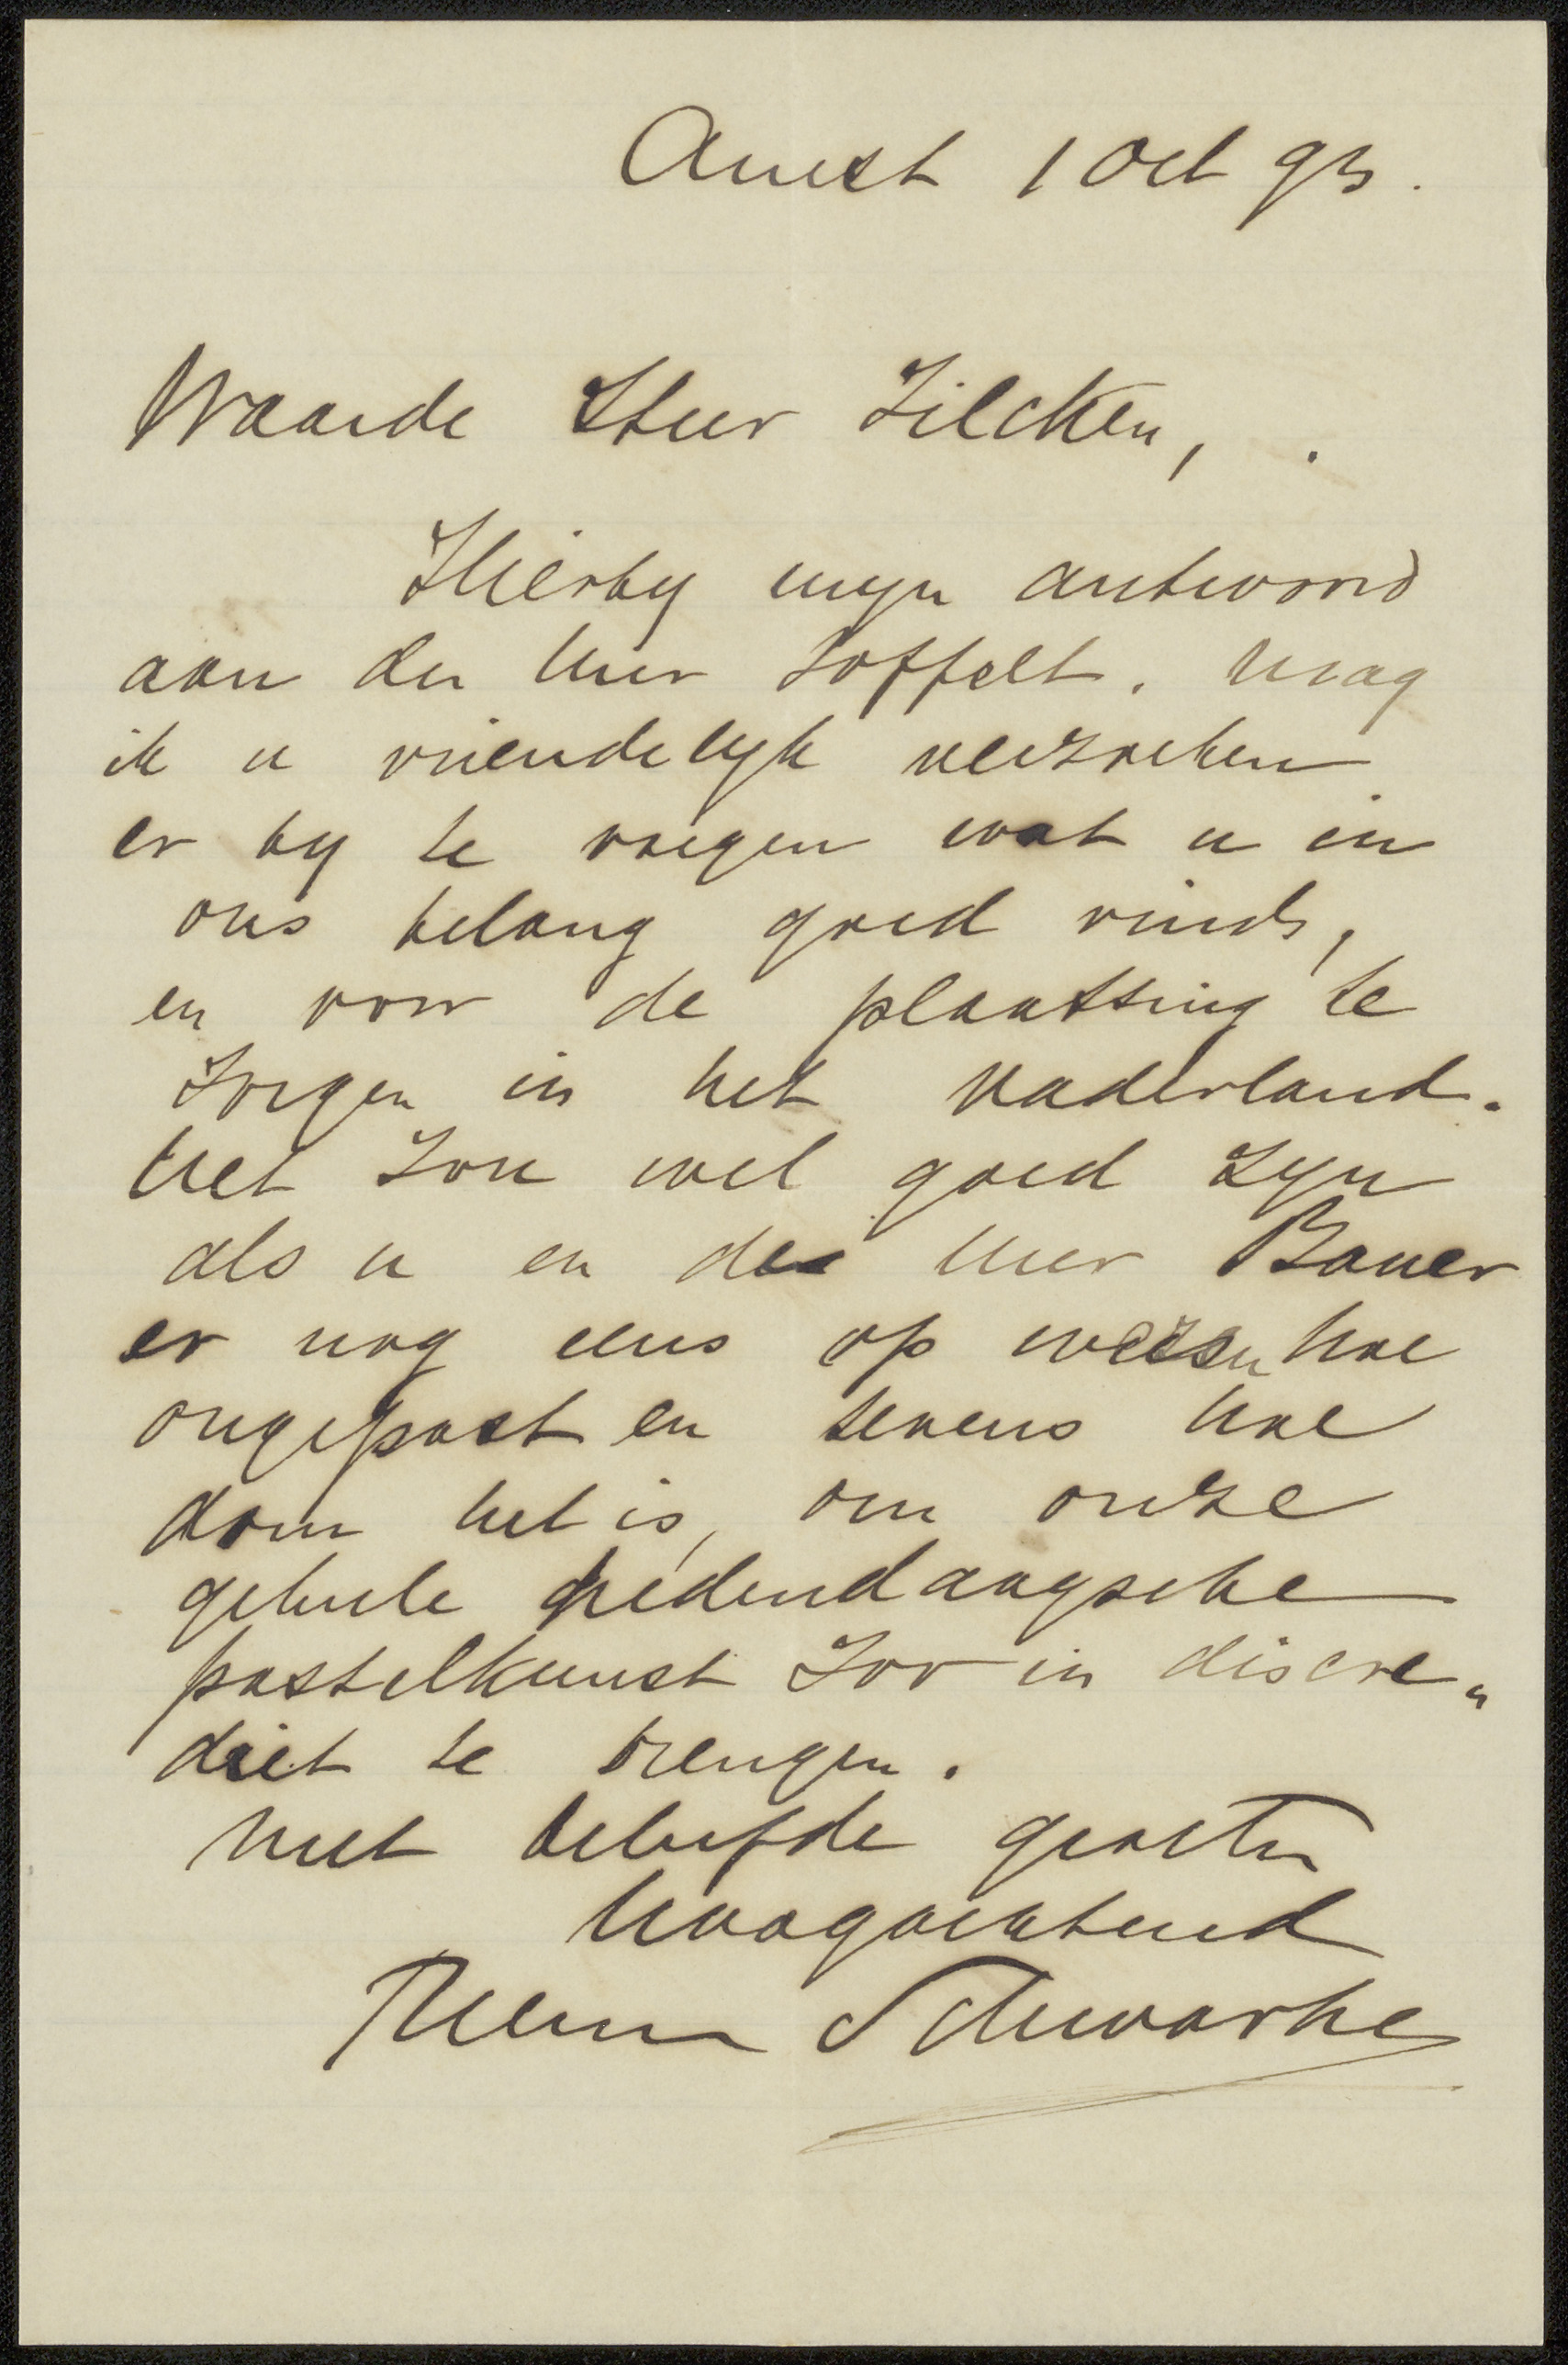 Amst 1 Oct 93.
Waarde Heer Zilcken,
Hierby myn antwoord
aan den heer Loffelt. Mag
ik u vriendelyk verzoeken
er by te voegen wat u in
ons belang goed vindt,
en voor de plaatsing te
zorgen in het Vaderland.
Het zou wel goed zyn
als u en de heer Bauer
er nog eens op wezen hoe
ongepast en tevens hoe
dom het is, om onze
geheele hedendaagsche
pastelkunst zoo in discre„
diet te brengen.
Met beleefde groeten
Hoogachtend
Therese Schwartze